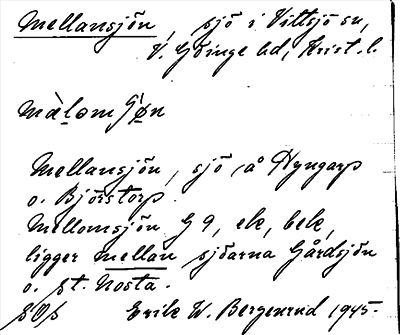 Mellansjön, sjö i Vittsjö sn,
V. Göinge hd, Krist. l.
màlomʃøn
Mellansjön, sjö, å Hyngarp
o. Björstorp.
Mellomsjön G 9, ek, bek,
ligger mellan sjöarna Gårdsjön
o. St. Nosta.
Erik W. Bergenrud 1945.